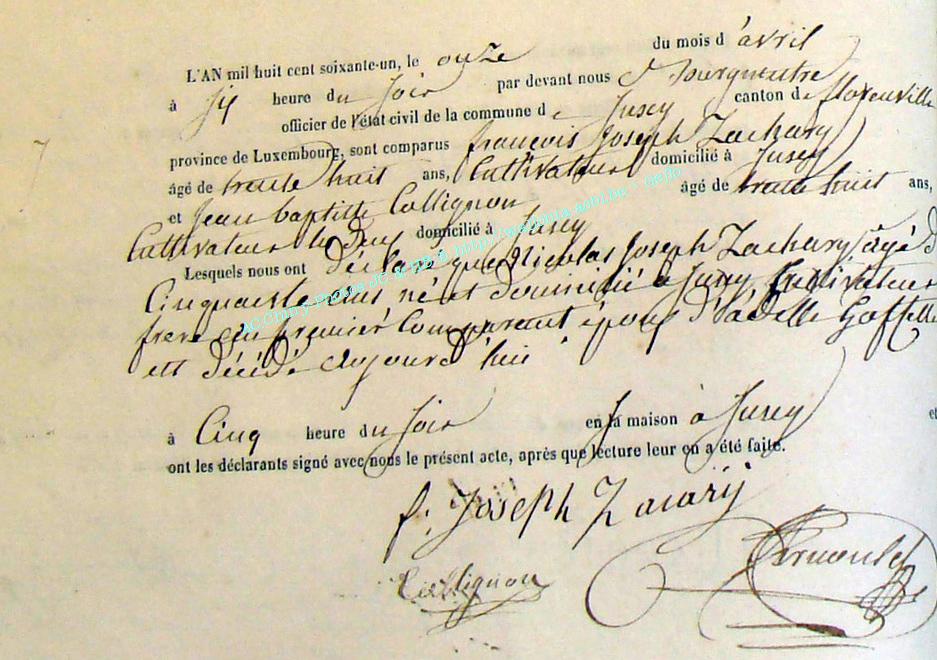 L'AN mil huit cent soixante-un, le onze du mois d'avril
à six heure du soir par devant nous
officier de l'état civil de la commune de Jusey canton de florenville
province de Luxembourg, sont comparus françois Joseph Zachary
âgé de trente huit ans, Cultivateur domicilié à Jusey
et Jean baptiste Collignon âgé de trente huit ans,
Cultivateur domicilié à Jusey
Lesquels nous ont déclaré que Nicolas Joseph Zachary âgé d
Cinquante ans né et domicilié à Jusey Cultivateur
frere du premier Comparant époux d'adelle
est décédé aujourd'hui
à Cinq heure du soir en la maison à Jusey et
ont les déclarants signé avec nous le présent acte, après que lecture leur en a été faite.
f. Joseph Zacarÿ
Collignon